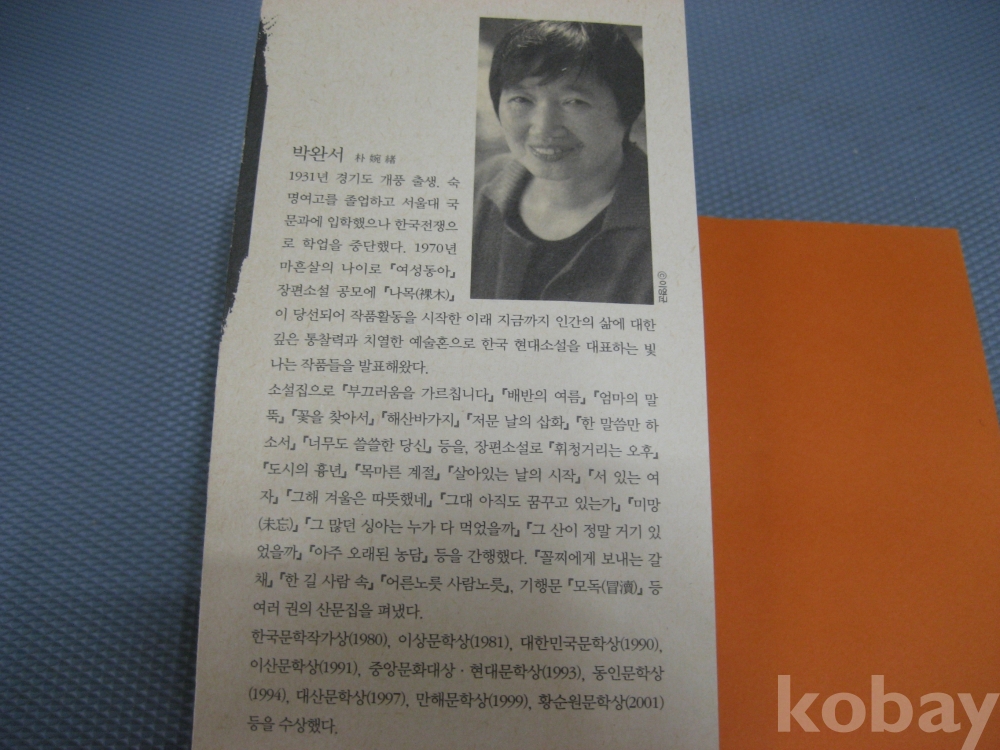 박완서 朴婉緖
1931년 경기도 개풍 출생. 숙
명여고를 졸업하고 서울대 국
문과에 입학했으나 한국전쟁으
로 학업을 중단했다. 1970년
마흔살의 나이로 『여성동아』
장편소설 공모에 『나목(裸木)』
이 당선되어 작품활동을 시작한 이래 지금까지 인간의 삶에 대한
깊은 통찰력과 치열한 예술혼으로 한국 현대소설을 대표하는 빛
나는 작품들을 발표해왔다.
소설집으로 『부끄러움을 가르칩니다』 『배반의 여름』 『엄마의 말
뚝』 『꽃을 찾아서』 『해산바가지』 『저문 날의 삽화』 『한 말씀만 하
소서』 『너무도 쓸쓸한 당신』 등을, 장편소설로 『휘청거리는 오후』
『도시의 흉년』 『목마른 계절』 『살아있는 날의 시작』 『서 있는 여
자』 『그해 겨울은 따뜻했네』 『그대 아직도 꿈꾸고 있는가』 『미망
(未忘)』 『그 많던 싱아는 누가 다 먹었을까』 『그 산이 정말 거기 있
었을까』 『아주 오래된 농담』 등을 간행했다. 『꼴찌에게 보내는 갈
채』 『한 길 사람 속』 『어른노릇 사람노릇』, 기행문 『모독(冒瀆)』 등
여러 권의 산문집을 펴냈다.
한국문학작가상(1980), 이상문학상(1981), 대한민국문학상(1990),
이산문학상(1991), 중앙문화대상·현대문학상(1993), 동인문학상
(1994), 대산문학상(1997), 만해문학상(1999), 황순원문학상(2001)
등을 수상했다.
ⓒ이영균
kobay